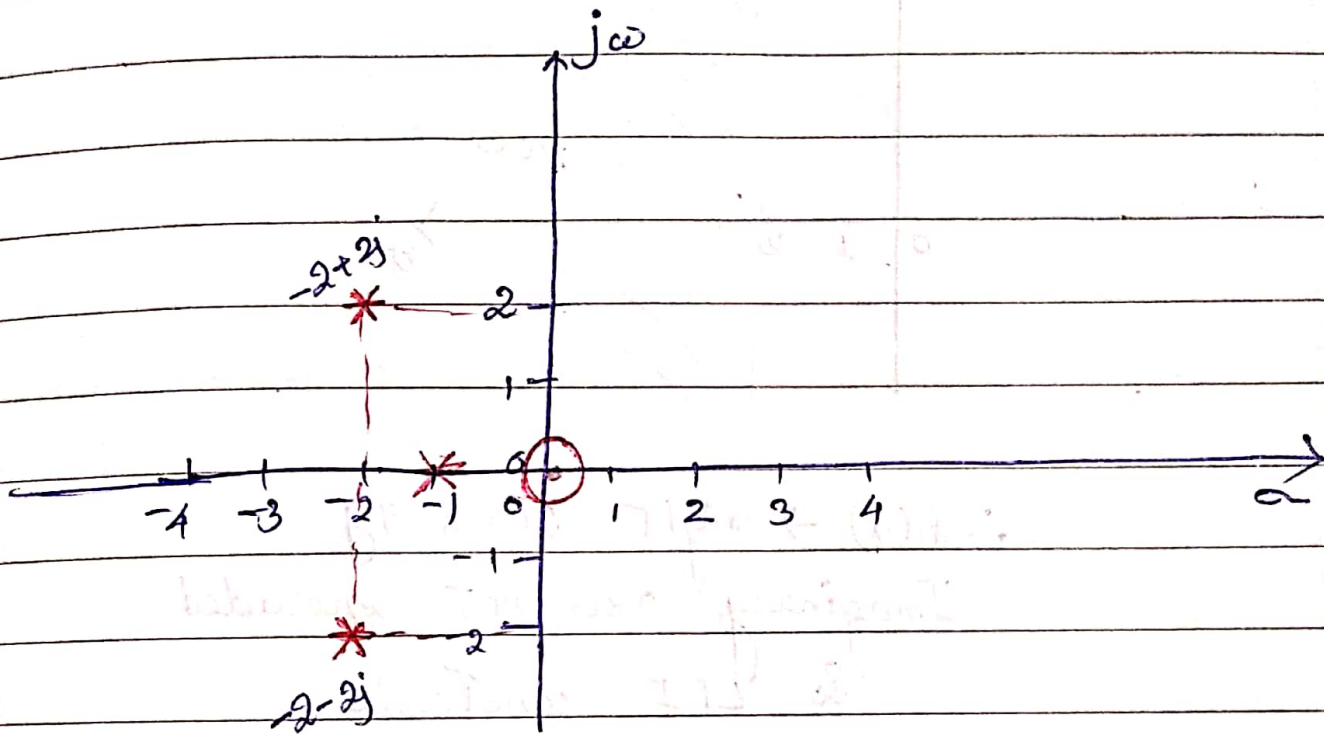 jω
-2+2j
2
1
0
-4 -3 -2 -1 0 1 2 3 4 σ
-1
-2
-2-2j